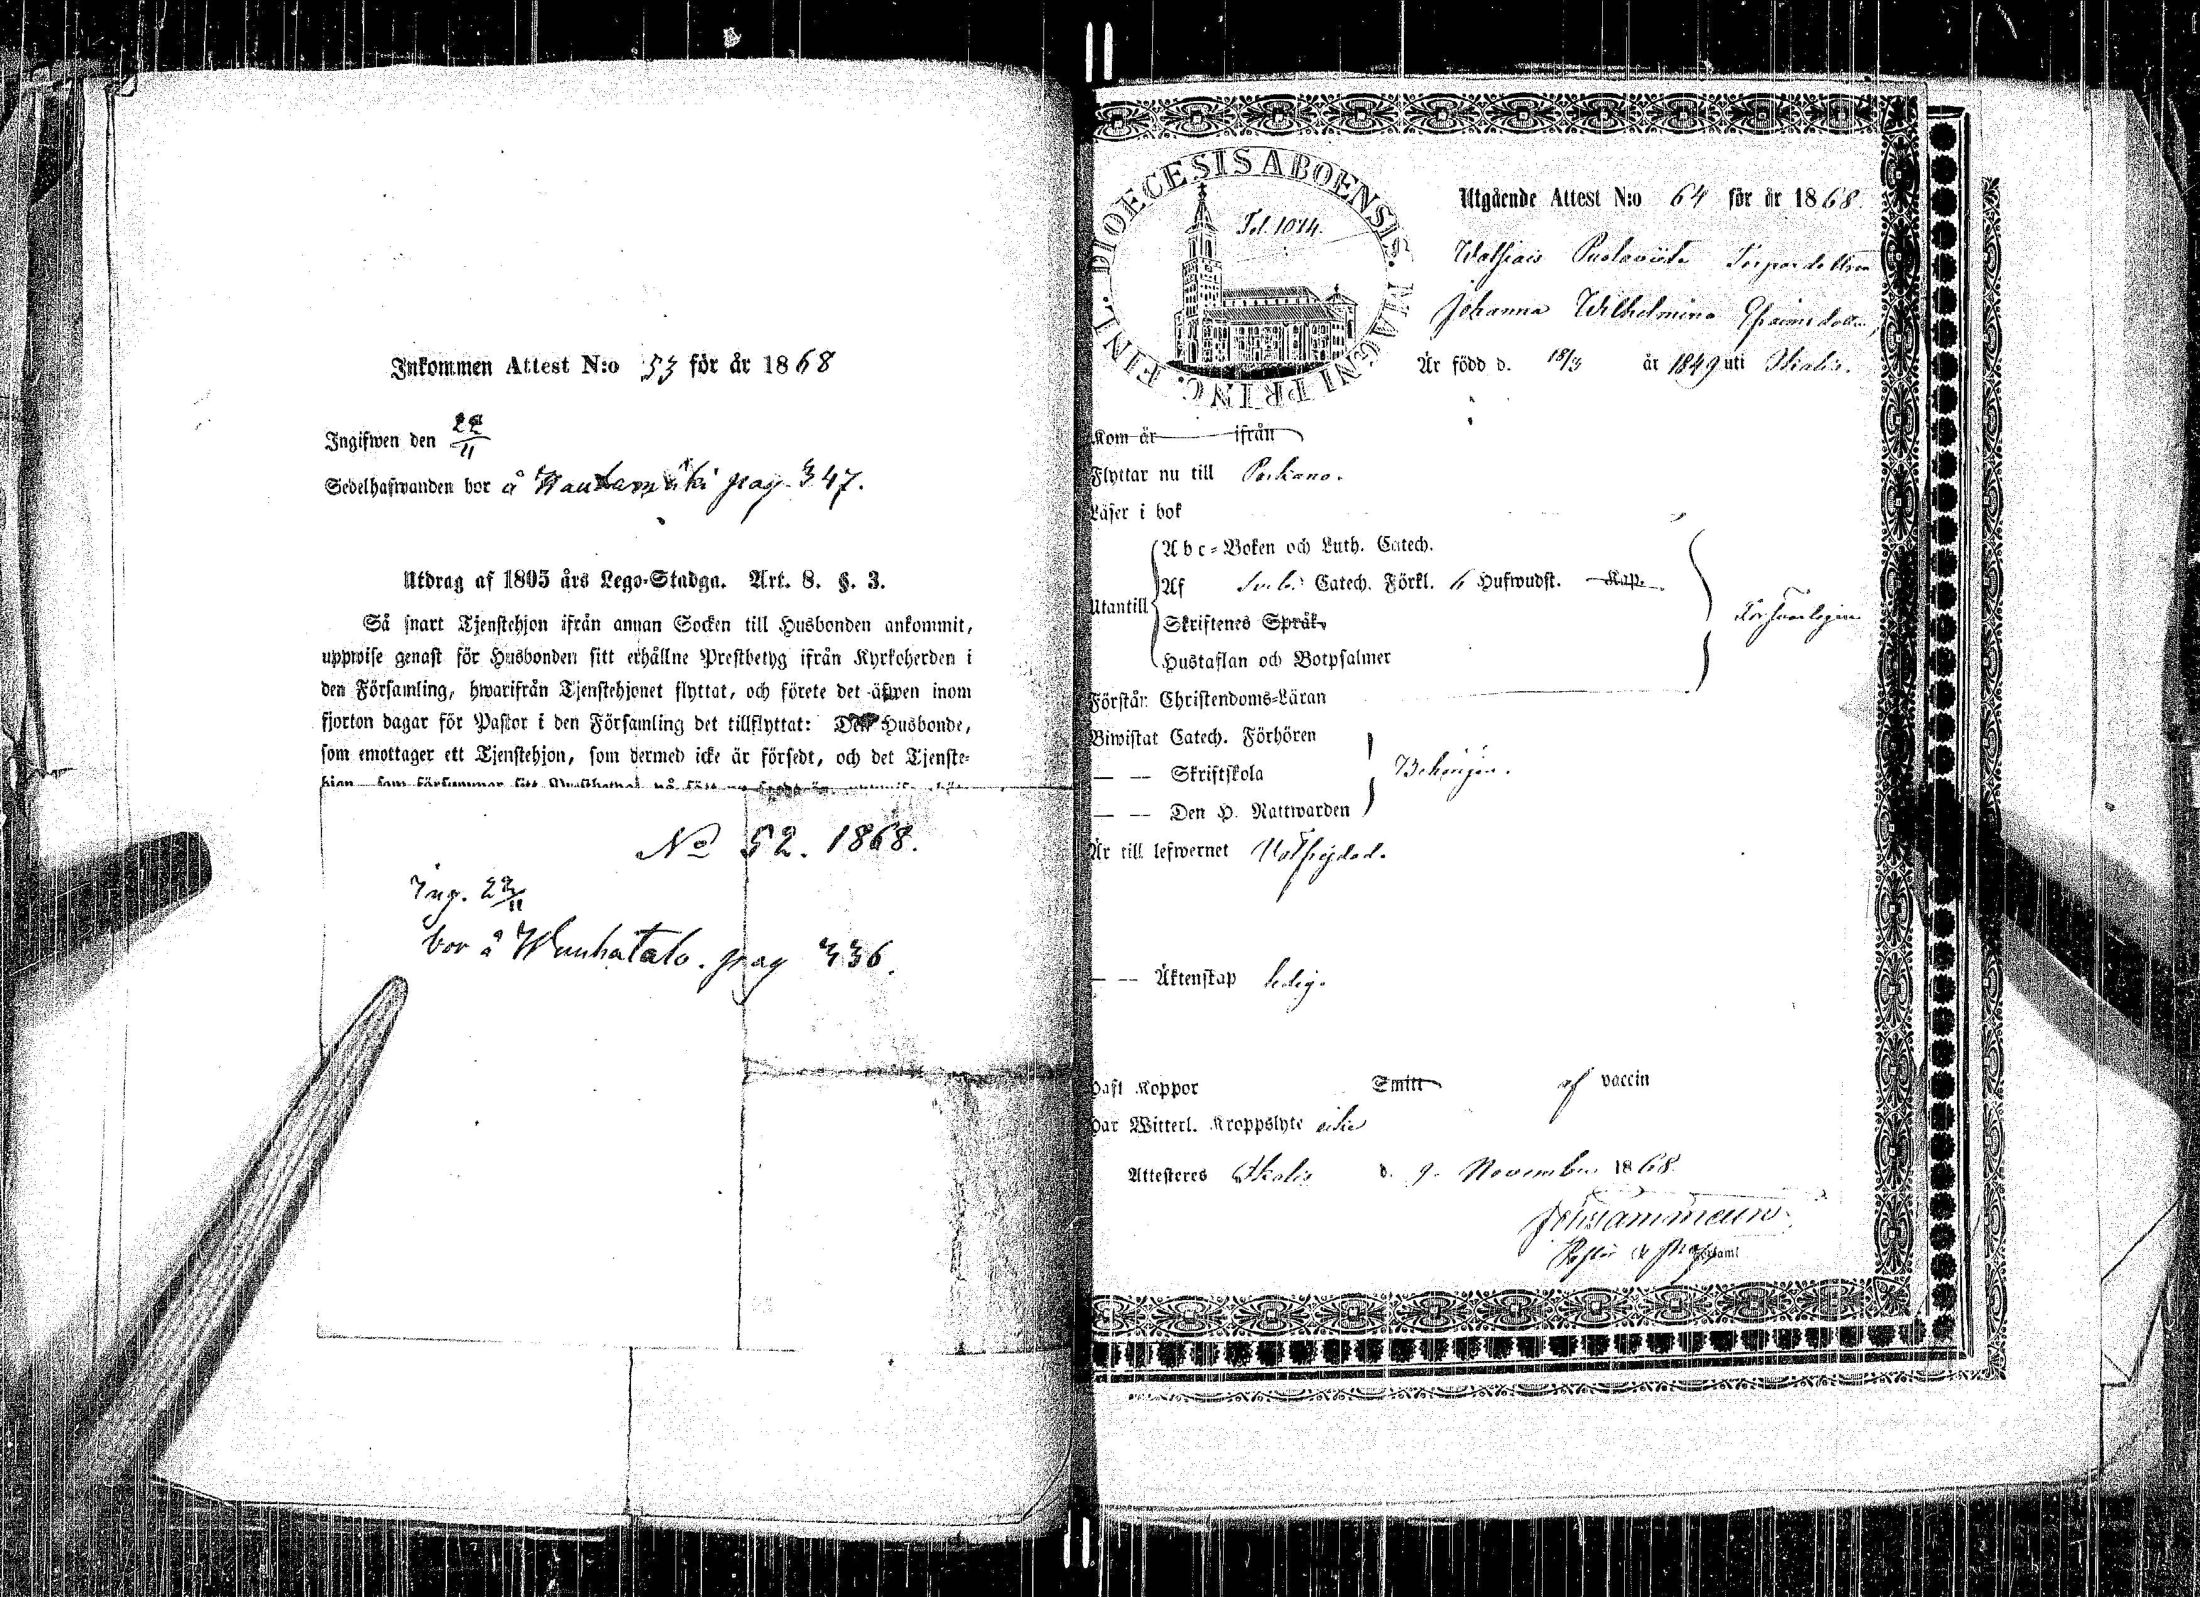 Inkommen Attest N:o 53 för år 1868
Ingifwen den 22/11
Sedelhafwanden bor å pag. 347.
Utdrag af 1805 års Lego-Stadga. Art. 8. §. 3.
Så snart Tjenstehjon ifrån annan Socken till Husbonden ankommit,
uppwise genast för Husbonden sitt erhållne Prestbetyg ifrån Kyrkoherden i
den Församling, hwarifrån Tjenstehjonet flyttat, och förete det äfwen inom
fjorton dagar för Pastor i den Församling det tillflyttat: Den Husbonde,
som emottager ett Tjenstehjon, som dermed icke är försedt, och det Tjenste-
hjon, som försummar sitt Prestbetyg
No 52. 1868.
Ing. 22/11
bor å Wanhatalo. pag 336.
DIOECESIS ABOENSIS. MAGNI PRINC. FINL.
Fol. 1074.
Utgående Attest N:o 64 för år 1868
Johanna Wilhelmina Efraimsdotter,
Är född d. 18/3 år 1849 uti Ikalis.
Kom år ifrån
Flyttar nu till Parkano.
Läser i bok
Abc-Boken och Luth. Catech.
Utantill
Af Catech. Förkl. 6 Hufwudst. Kap.
Skriftenes Språk
Hustaflan och Botpsalmer
Försvarligen
Förstår Christendoms-Läran
Biwistat Catech. Förhören
— — Skriftskola
Behörigen.
— — Den H. Nattwarden
Är till lefwernet Välfrejdad.
— — Äktenskap ledig.
Haft Koppor Smitt af vaccin
Har Witterl. Kroppslyte
Attesteres Ikalis d. 9 November 1868.